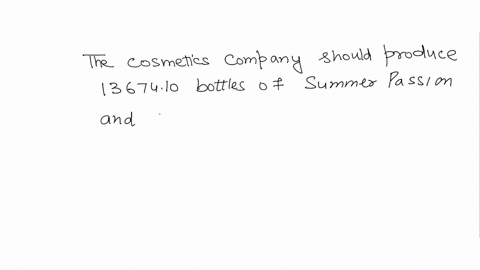 The cosmetics company should produce
13674.10 bottles of Summer Passion
and